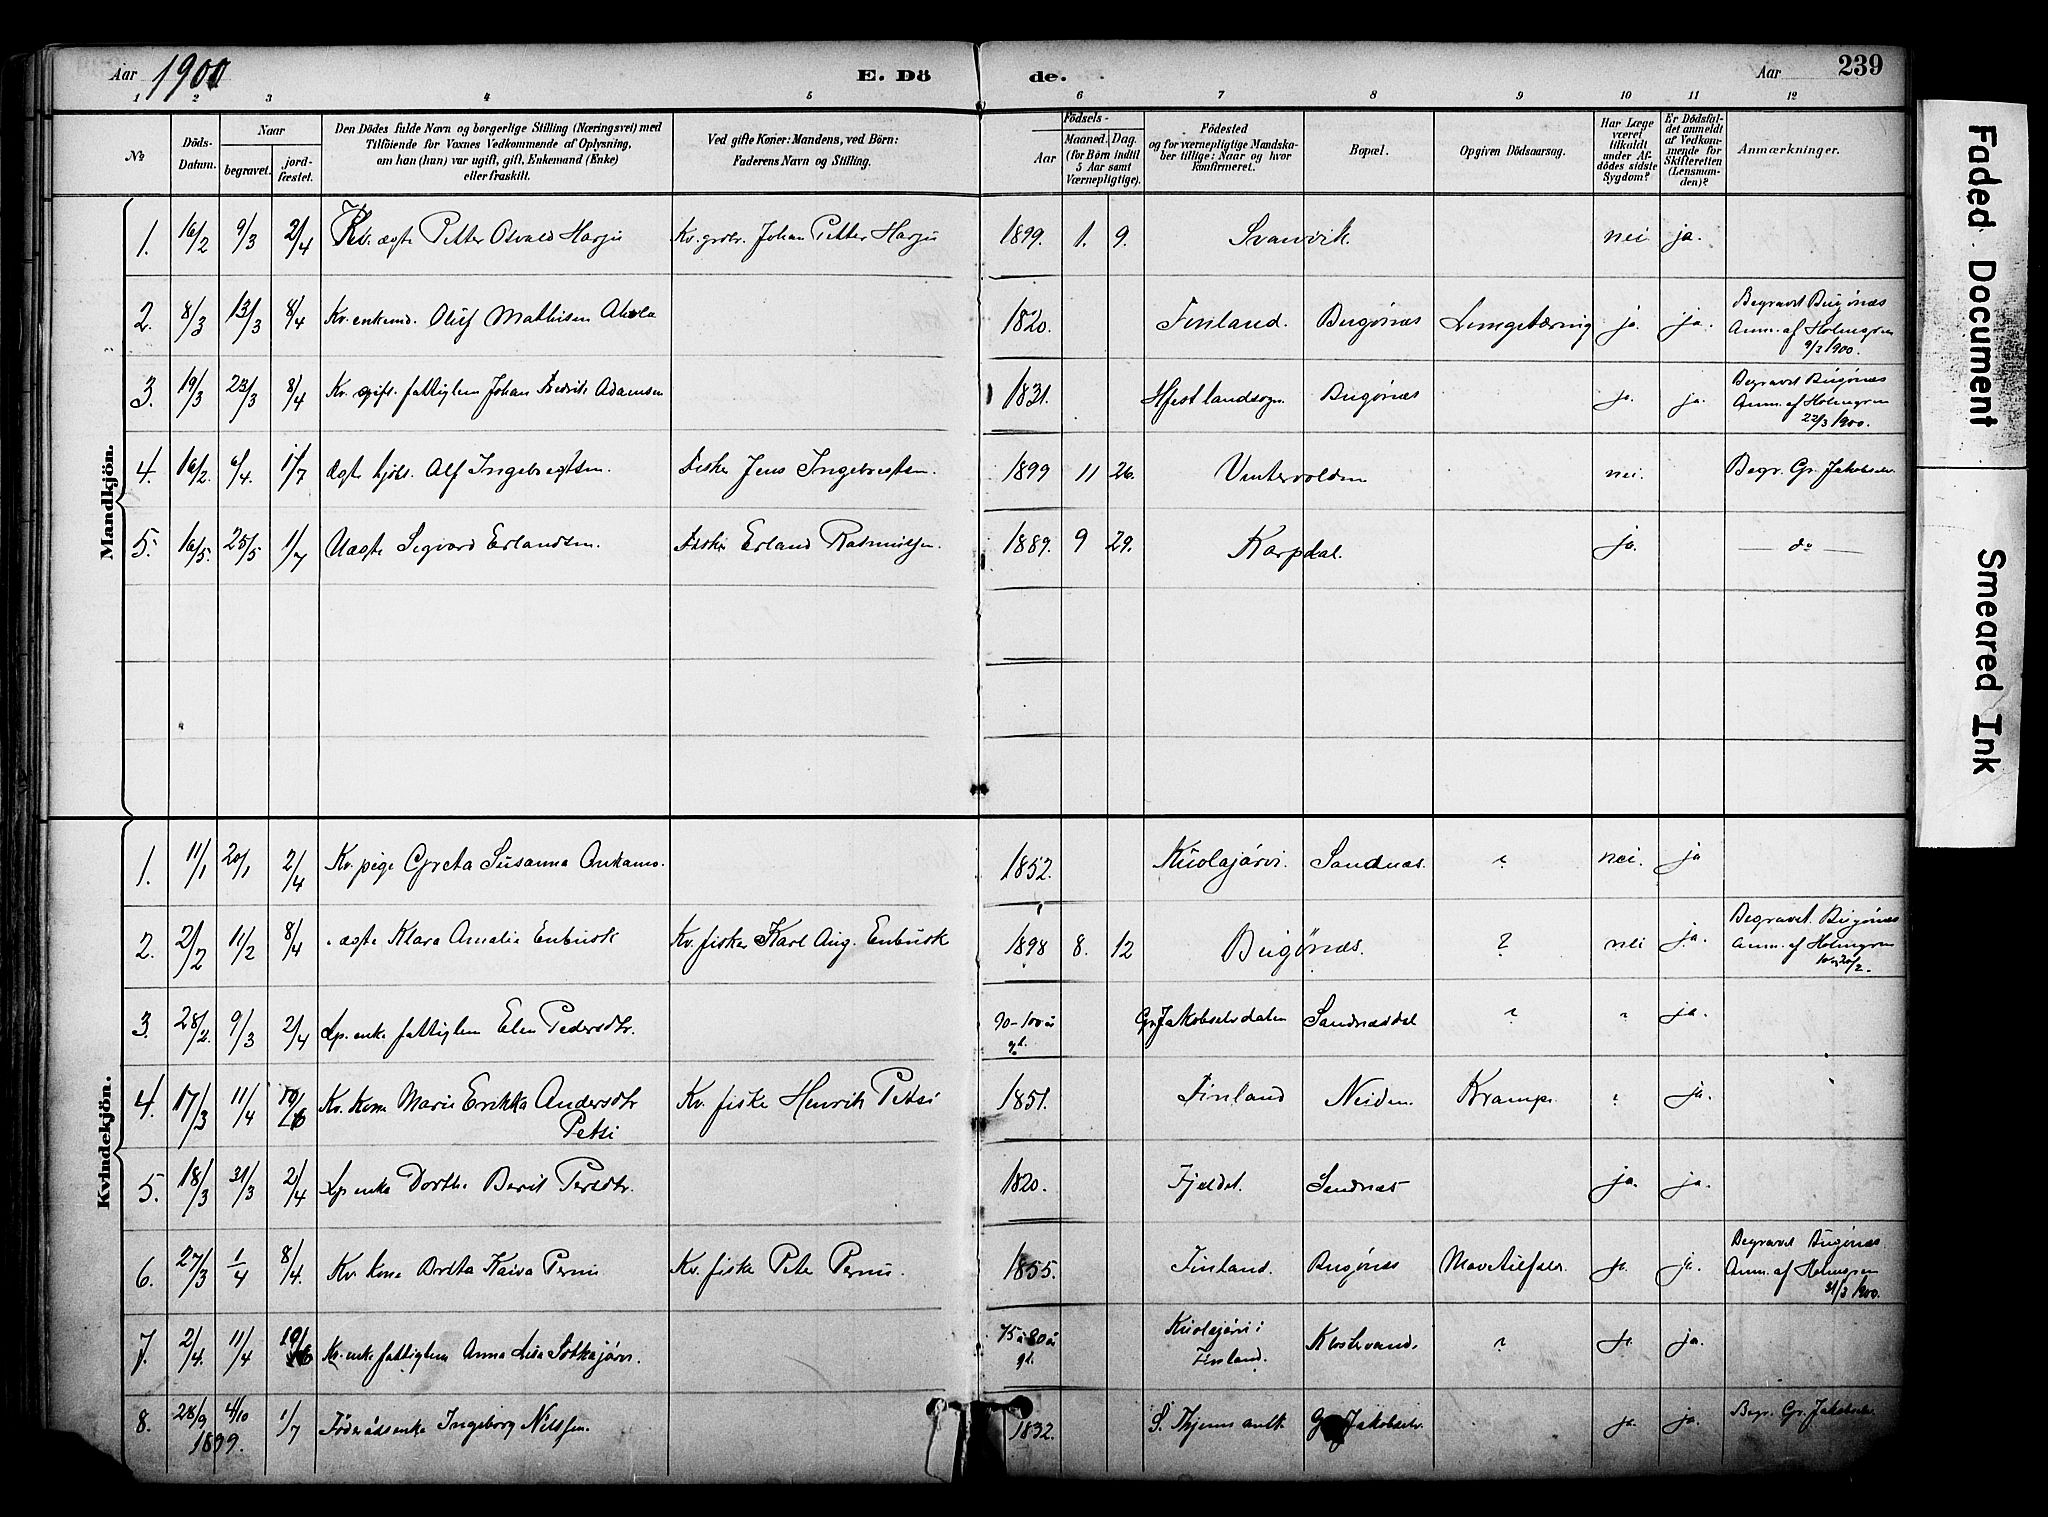 Aar 1900 E. Dö de. Aar 239
1 2 3 4 5 6 7 8 9 10 11 12
No
Döds-Datum.
Naar
begravet.
jord-fæstet.
Den Dödes fulde Navn og borgerlige Stilling (Næringsvei) med
Tilföiende for Voxnes Vedkommende af Oplysning,
om han (hun) var ugift, gift, Enkemand (Enke)
eller fraskilt.
Ved gifte Koner: Mandens, ved Börn:
Faderens Navn og Stilling.
Födsels-
Aar
Maaned. Dag.
(for Börn indtil
5 Aar samt
Værnepligtige).
Födested
og for værnepligtige Mandska-
ber tillige: Naar og hvor
konfirmeret.
Bopæl.
Opgiven Dödsaarsag.
Har Læge
været
tilkaldt
under Af-
dödes sidste
Sygdom?
Er Dödsfal-
det anmeldt
af Vedkom-
mende for
Skifteretten
(Lensman-
den)?
Anmærkninger.
Mandkjön.
1. 16/2 9/3 2/4 Kv. ægte Petter Osvald Harju Kv. grdbr. Johan Petter Harju 1899. 1. 9. Svanvik. nei ja.
2. 8/3 13/3 8/4 Kv. enkemd. Oluf Mathisen Ahola 1820. Finland. Bugönæs Lungetæring ja. ja. Begravet Bugönæs
Anm. af Holmgren
9/3 1900.
3. 19/3 23/3 8/4 Kv. gift. fattiglem Johan Fredrik Adamsen 1831. Hfest landsogn. Bugönæs ja. ja. Begravet Bugönæs
Anm. af Holmgren
22/3 1900.
4. 16/2. 6/4. 1/7 Ægte Alf Ingebregtsen. Fisker Jens Ingebregtsen. 1899 11 26. Vintervolden nei. Begr. Gr. Jakobselv.
5. 16/5. 25/5 1/7 Uægte Sigvard Erlandsen. Fisker Erland Rasmussen. 1889. 9 29. Karpdal. ja. — do —
Kvindekjön.
1. 11/1 20/1 2/4 Kv. pige Greta Susanna Ankamo. 1852. Kuolajärvi. Sandnæs. ? nei. ja
2. 2/2 11/2 8/4 ægte Klara Amalia Enbusk Kv. fisker Karl Aug. Enbusk 1898 8. 12 Bugönæs. ? nei ja. Begravet Bugönæs
Anm. af Holmgren
3. 28/2. 9/3 2/4 Lp. enke fattiglem Elen Pedersdtr. 90–100 år
gl. Gr. Jakobselvdalen Sandnæsdal ? " ja.
4. 17/3 11/4 10/6 Kv. Kone Marie Erikka Andersdtr
Petsi Kv. fisker Henrik Petsi 1851. Finland Neiden Krampe ? ja.
5. 18/3 31/3 2/4 Lp enke Dorthe Berit Persdtr. 1820. Fjeldet. Sandnæs ja. ja.
6. 27/3 1/4 8/4. Kv. kone Kaisa Pernu Kv. fisker Peter Pernu. 1855. Finland. Bugönæs ja. ja. Begravet Bugönæs
Anm. af Holmgren
31/3 1900.
7. 2/4. 11/4 10/6 Kv. enke fattiglem Anna Lisa Sotkajärvi. 75 à 80 år
gl. Kuolajärvi i
Finland. Klostervand. ? ja. ja.
8. 28/9 4/10 1/7 Föderådsenke Ingeborg Nilssen. 1832. Gr. Jakobselv. ja. ja. Begr. Gr. Jakobselv.
1899.
Faded Document
Smeared Ink